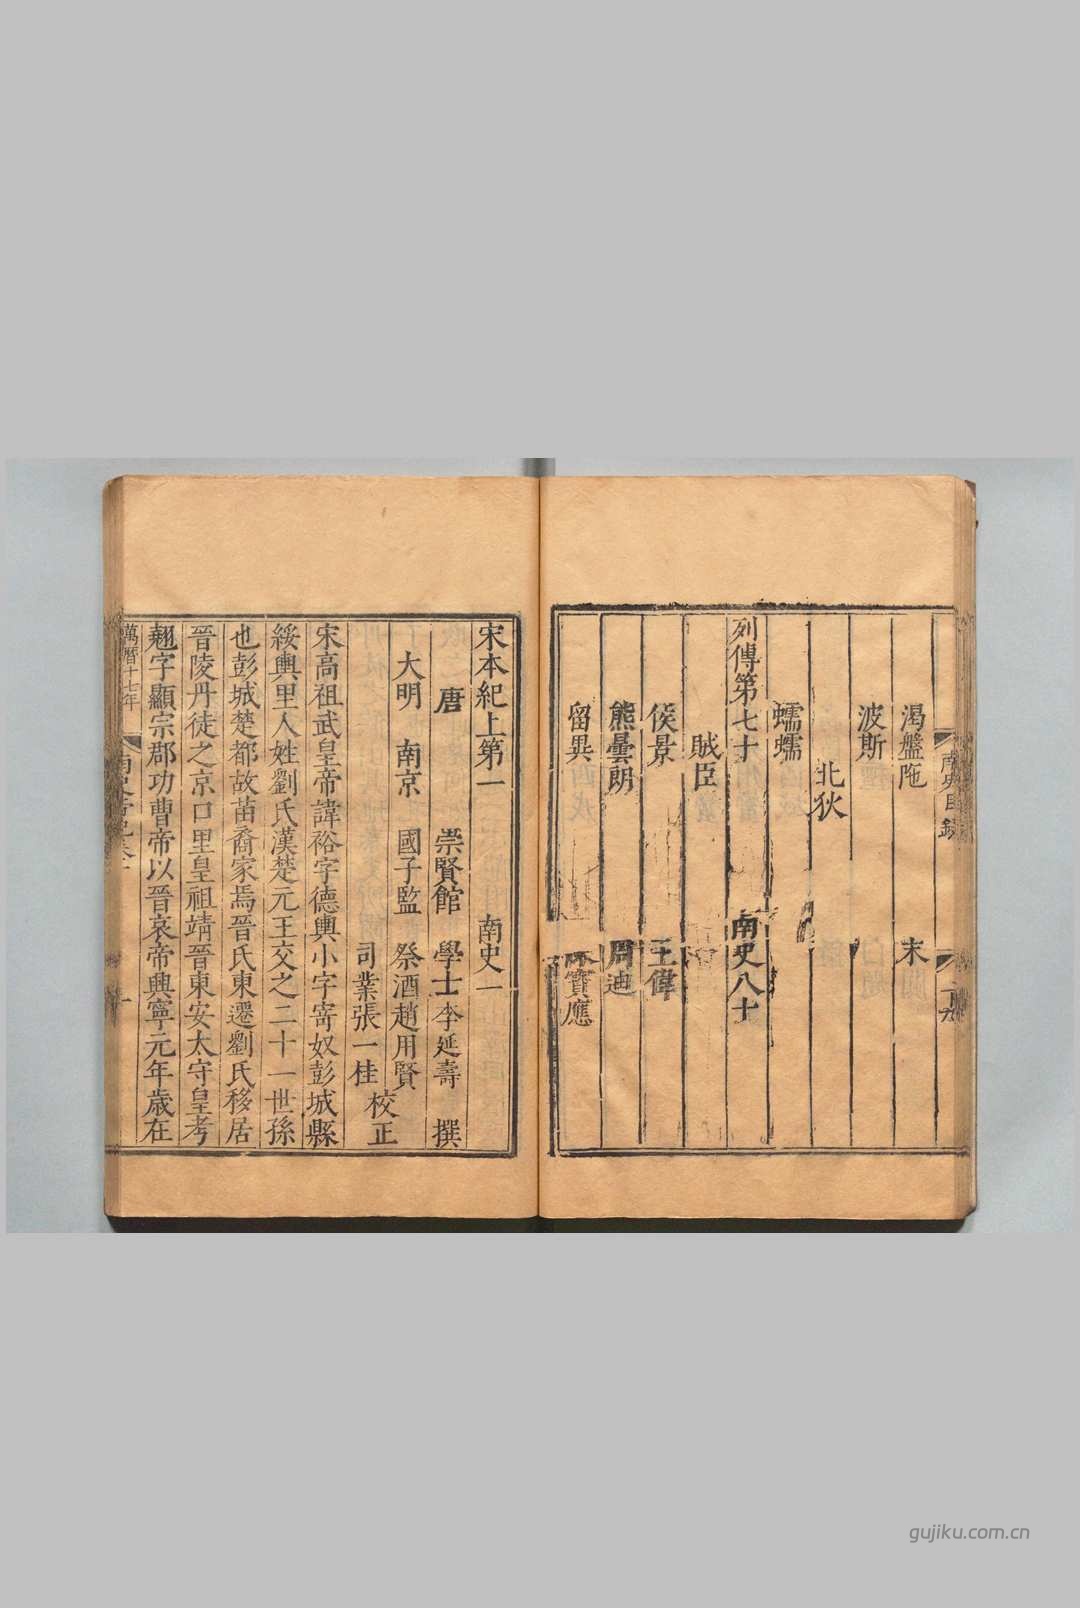 南史目錄
渴盤陁 末
波斯
北狄
蠕蠕
列傳第七十 南史八十
賊臣
侯景 王偉
熊曇朗 周迪
留異 寶應
宋本紀上第一 南史一
唐 崇賢館 學士李延壽 撰
大明 南京 國子監 祭酒趙用賢
司業張一桂 校正
宋高祖武皇帝諱裕字德輿小字寄奴彭城縣
綏輿里人姓劉氏漢楚元王交之二十一世孫
也彭城楚都故苗裔家焉晉氏東遷劉氏移居
晉陵丹徒之京口里皇祖靖晉東安太守皇考
翹字顯宗郡功曹帝以晉哀帝興寧元年歲在
萬曆十七年
一
gujiku.com.cn